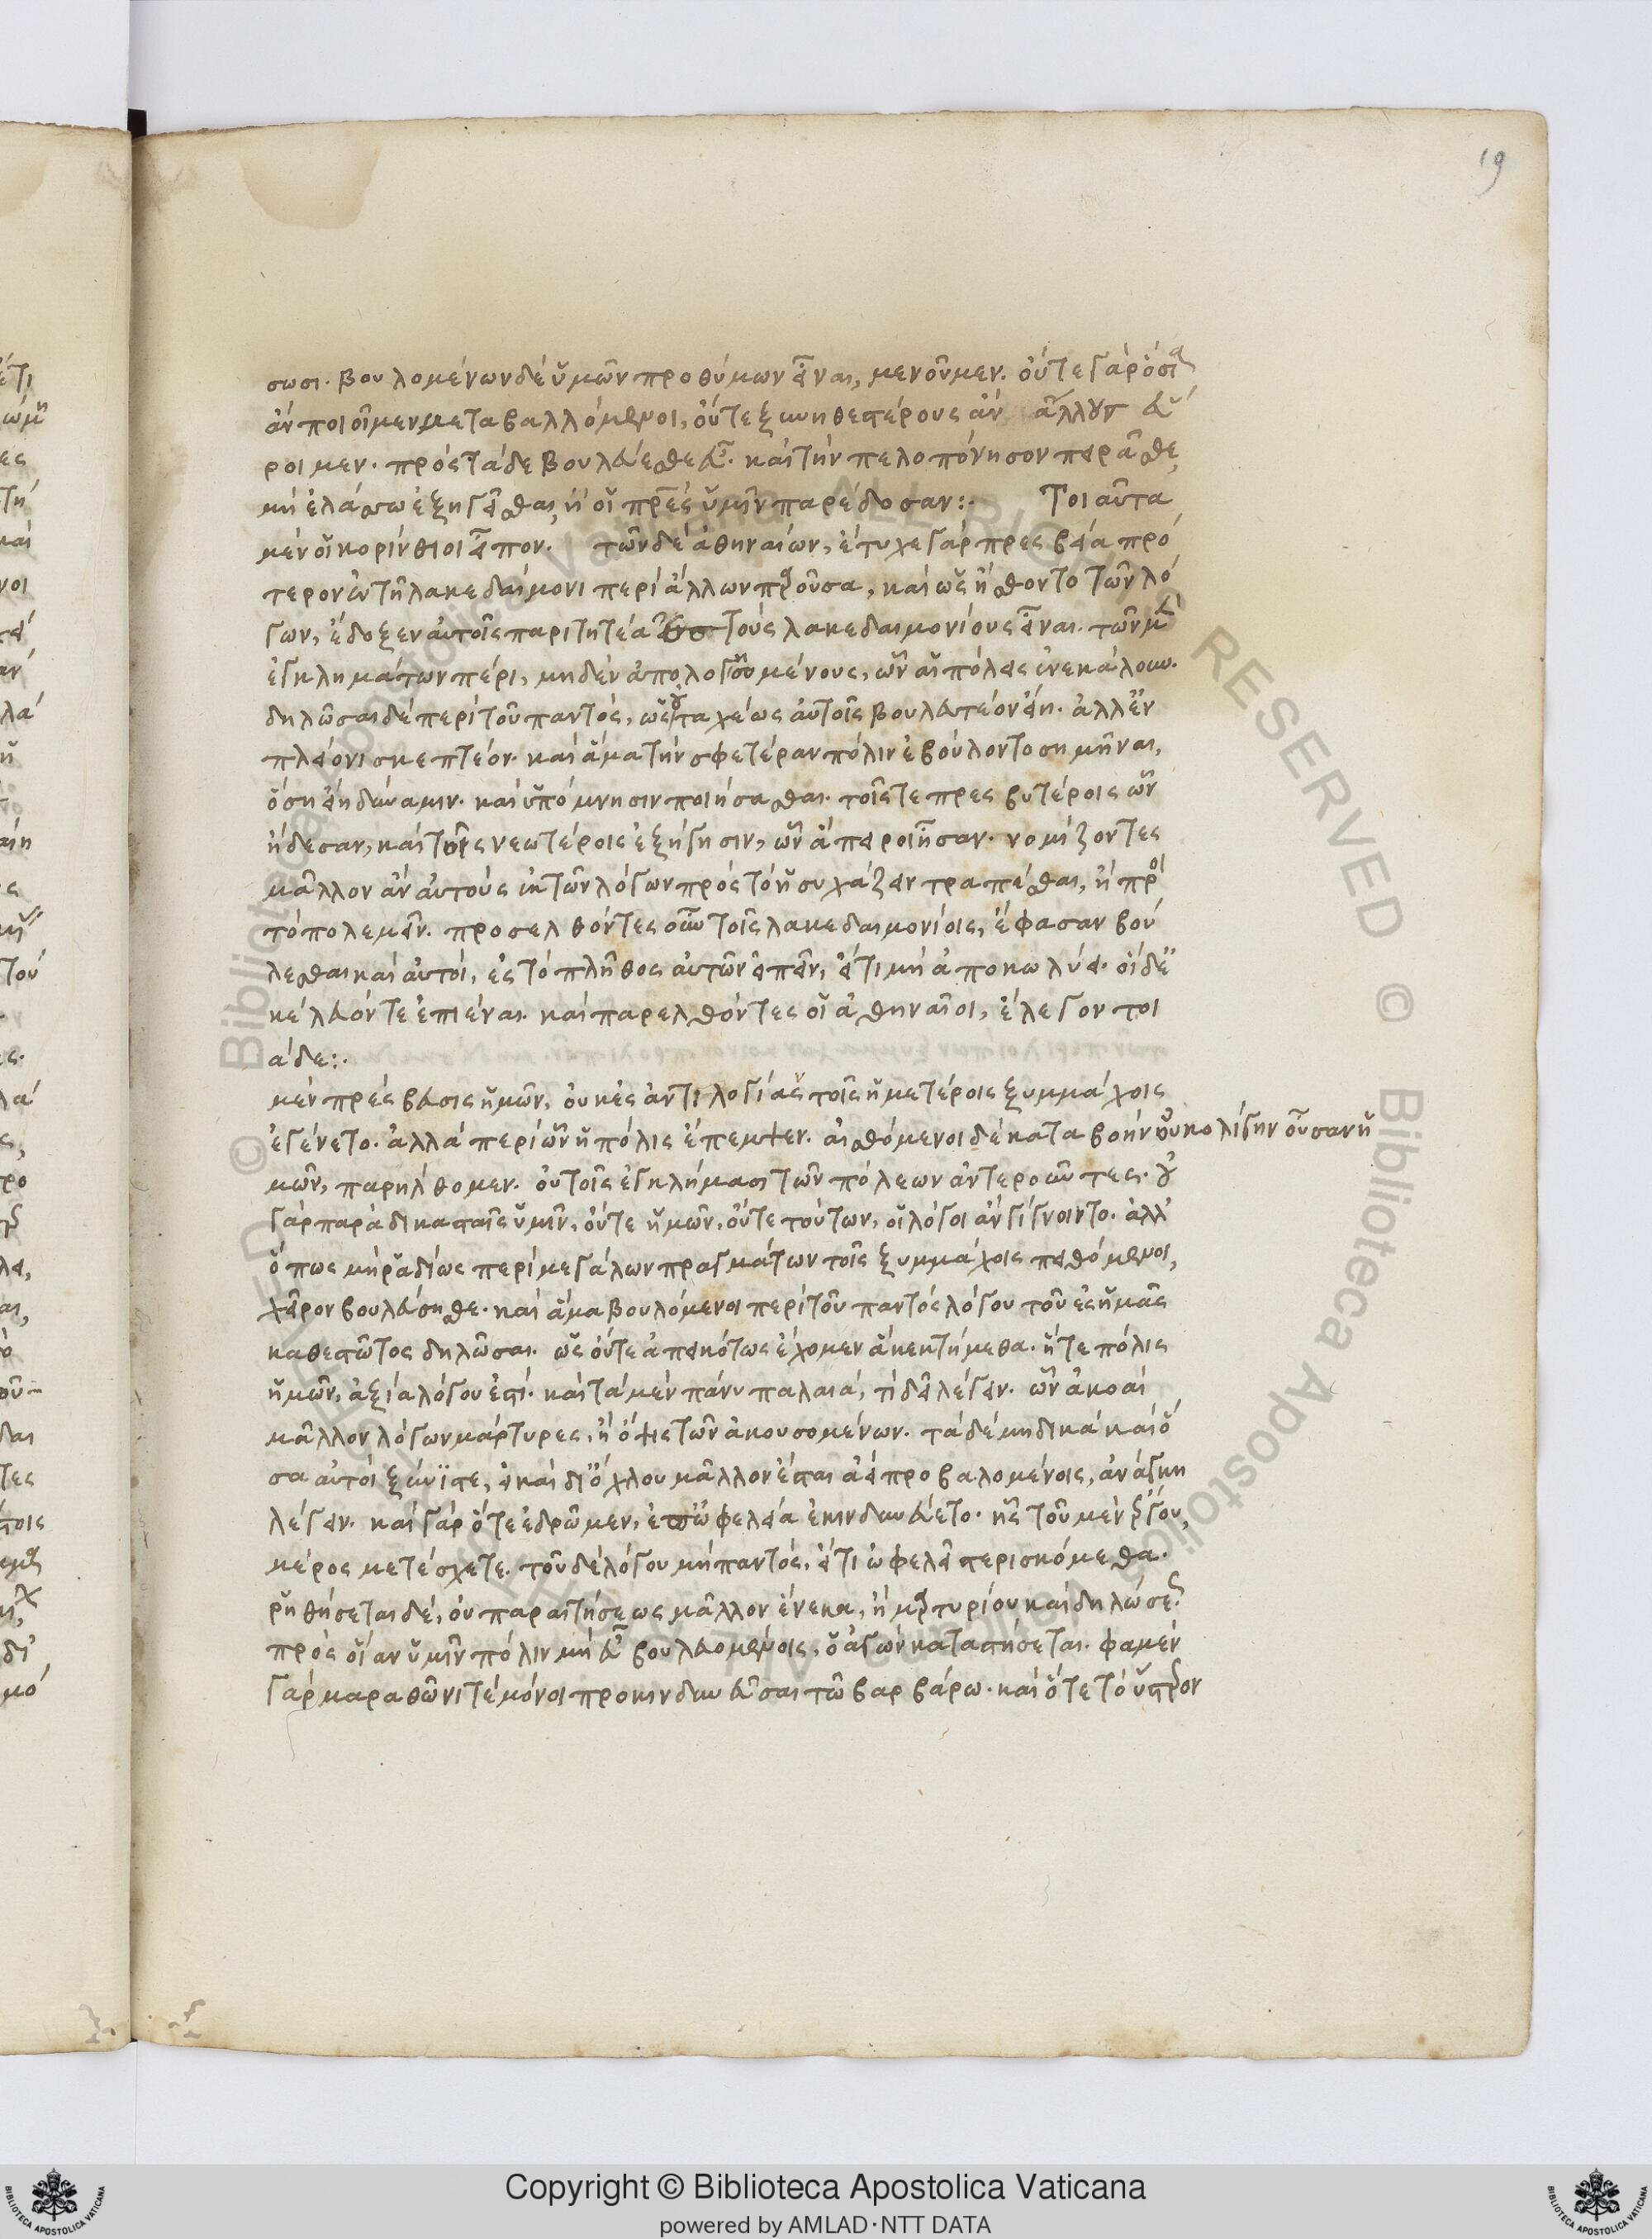 19
σωσι. βουλομένων δὲ ὑμῶν προθύμων εἶναι, μενοῦμεν. οὔτε γὰρ ὅσια
ἂν ποιοῖμεν μεταβαλλόμενοι, οὔτε ξυνηθεστέρους ἂν ἄλλους εὕ
ροιμεν. πρὸς τάδε βουλεύεσθε εὖ. καὶ τὴν πελοπόνησον πειρᾶσθε,
μὴ ἐλάσσω ἐξηγεῖσθαι, ἢ οἱ πρες ὑμῖν παρέδοσαν:. Τοιαῦτα
μὲν οἱ κορίνθιοι εἶπον. τῶν δὲ ἀθηναίων, ἔτυχε γὰρ πρεσβεία πρό
τερον ἐν τῆ λακεδαίμονι περὶ ἄλλων παροῦσα, καὶ ὡς ἤσθοντο τῶν λό
γων, ἔδοξεν αὐτοῖς παριτητέα τοὺς λακεδαιμονίους εἶναι. τῶν μὲν
ἐγκλημάτων πέρι, μηδὲν ἀπολογησομένους, ὧν αἱ πόλεις ἐνεκάλουν.
δηλῶσαι δὲ περὶ τοῦ παντὸς, ὡς οὐ ταχέως αὐτοῖς βουλευτέον εἴη. ἀλλ' ἐν
πλείονι σκεπτέον. καὶ ἅμα τὴν σφετέραν πόλιν ἐβούλοντο σημῆναι,
ὅση εἴη δύναμιν. καὶ ὑπόμνησιν ποιήσασθαι. τοῖς τε πρεσβυτέροις ὧν
ἤδεσαν, καὶ τοῖς νεωτέροις ἐξήγησιν, ὧν ἄπειροι ἦσαν. νομίζοντες
μᾶλλον ἂν αὐτοὺς ἐκ τῶν λόγων πρὸς τὸ ἡσυχάζειν τραπέσθαι, ἢ πρὸ
τὸ πολεμεῖν. προσελθόντες οὖν τοῖς λακεδαιμονίοις, ἔφασαν βού
λεσθαι καὶ αὐτοὶ, ἐς τὸ πλῆθος αὐτῶν εἰπεῖν, εἴ τι μὴ ἀποκωλύει. οἱ δ' ἐ
κέλευόν τε ἐπιέναι. καὶ παρελθόντες οἱ ἀθηναῖοι, ἔλεγον τοι
άδε:.
μὲν πρέσβευσις ἡμῶν, οὐκ ἐς ἀντιλογίαν τοῖς ἡμετέροις ξυμμάχοις
ἐγένετο. ἀλλὰ περὶ ὧν ἡ πόλις ἔπεμψεν. αἰσθόμενοι δὲ καταβοὴν οὐκ ὀλίγην οὖσαν ἡ
μῶν, παρήλθομεν. οὐ τοῖς ἐγκλήμασι τῶν πόλεων ἀντεροῦντες. οὐ
γὰρ παρὰ δικασταῖς ὑμῖν, οὔτε ἡμῶν, οὔτε τούτων, οἱ λόγοι ἂν γίγνοιντο. ἀλλ'
ὅπως μὴ ῥαδίως περὶ μεγάλων πραγμάτων τοῖς ξυμμάχοις πειθόμενοι,
χεῖρον βουλεύσησθε. καὶ ἅμα βουλόμενοι περὶ τοῦ παντὸς λόγου τοῦ ἐς ἡμᾶς
καθεστῶτος δηλῶσαι. ὡς οὔτε ἀπεικότως ἔχομεν ἃ κεκτήμεθα. ἥτε πόλις
ἡμῶν, ἀξία λόγου ἐστί. καὶ τὰ μὲν πάνυ παλαιὰ, τί δεῖ λέγειν. ὧν ἀκοαὶ
μᾶλλον λόγων μάρτυρες, ἢ ὄψις τῶν ἀκουσομένων. τὰ δὲ μηδικὰ καὶ ὅ
σα αὐτοὶ ξύνϊστε, εἰ καὶ δι' ὄχλου μᾶλλον ἔσται ἀεὶ προβαλομένοις, ἀνάγκη
λέγειν. καὶ γὰρ ὅτε ἐδρῶμεν, ἐπ' ὠφελεία ἐκινδυνεύετο. ἧς τοῦ μὲν ἔργου,
μέρος μετέσχετε. τοῦ δὲ λόγου μὴ παντὸς, εἴ τι ὠφελεῖ στερισκόμεθα.
ῥηθήσεται δὲ, οὐ παραιτήσεως μᾶλλον ἕνεκα, ἢ μαρτυρίου καὶ δηλώσεως
πρὸς οἵαν ὑμῖν πόλιν μὴ εὖ βουλευομένοις, ὁ ἀγὼν καταστήσεται. φαμὲν
γὰρ μαραθῶνί τε μόνοι προκινδυνεῦσαι τῶ βαρβάρω. καὶ ὅτε τὸ ὕστερον
Copyright © Biblioteca Apostolica Vaticana
powered by AMLAD·NTT DATA